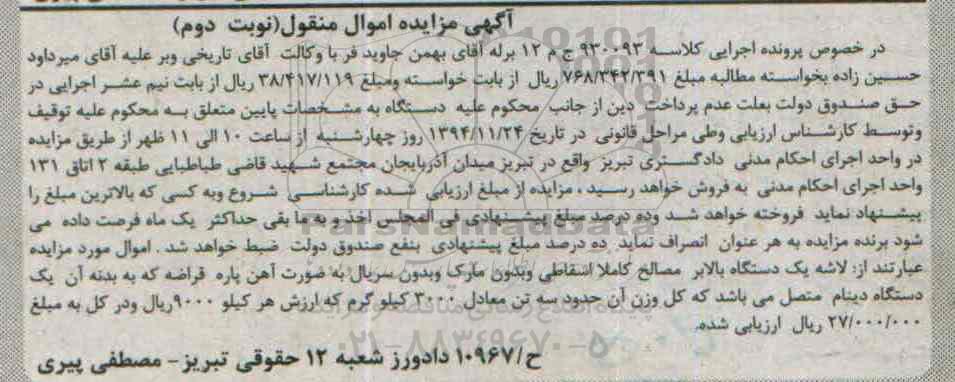 آگهی مزایده اموال منقول(نوبت دوم)
در خصوص پرونده اجرایی کلاسه ۹۳۰۰۹۳ ج م ۱۲ برله آقای بهمن جاوید فر با وکالت آقای تاریخی وبر علیه آقای میرداود
حسین زاده بخواسته مطالبه مبلغ ۷۶۸/۳۴۲/۳۹۱ ریال از بابت خواسته ومبلغ ۳۸/۴۱۷/۱۱۹ ریال از بابت نیم عشر اجرایی در
حق صندوق دولت بعلت عدم پرداخت دین از جانب محکوم علیه دستگاه به مشخصات پایین متعلق به محکوم علیه توقیف
وتوسط کارشناس ارزیابی وطی مراحل قانونی در تاریخ ۱۳۹۴/۱۱/۲۴ روز چهارشنبه از ساعت ۱۰ الی ۱۱ ظهر از طریق مزایده
در واحد اجرای احکام مدنی دادگستری تبریز واقع در تبریز میدان آذربایجان مجتمع شهید قاضی طباطبایی طبقه ۲ اتاق ۱۳۱
واحد اجرای احکام مدنی به فروش خواهد رسید ، مزایده از مبلغ ارزیابی شده کارشناسی شروع وبه کسی که بالاترین مبلغ را
پیشنهاد نماید فروخته خواهد شد وده درصد مبلغ پیشنهادی فی المجلس اخذ و به ما بقی حداکثر یک ماه فرصت داده می
شود برنده مزایده به هر عنوان انصراف نماید ده درصد مبلغ پیشنهادی بنفع صندوق دولت ضبط خواهد شد . اموال مورد مزایده
عبارتند از: لاشه یک دستگاه بالابر مصالح کاملا اسقاطی وبدون مارک وبدون سریال به صورت آهن پاره قراضه که به بدنه آن یک
دستگاه دینام متصل می باشد که کل وزن آن حدود سه تن معادل ۳۰۰۰ کیلو گرم که ارزش هر کیلو ۹۰۰۰ریال ودر کل به مبلغ
۲۷/۰۰۰/۰۰۰ ریال ارزیابی شده.
ح/۱۰۹۶۷ دادورز شعبه ۱۲ حقوقی تبریز- مصطفی پیری
ParsNamadData
۰۲۱-۸۸۳۴۹۶۷۰-۵